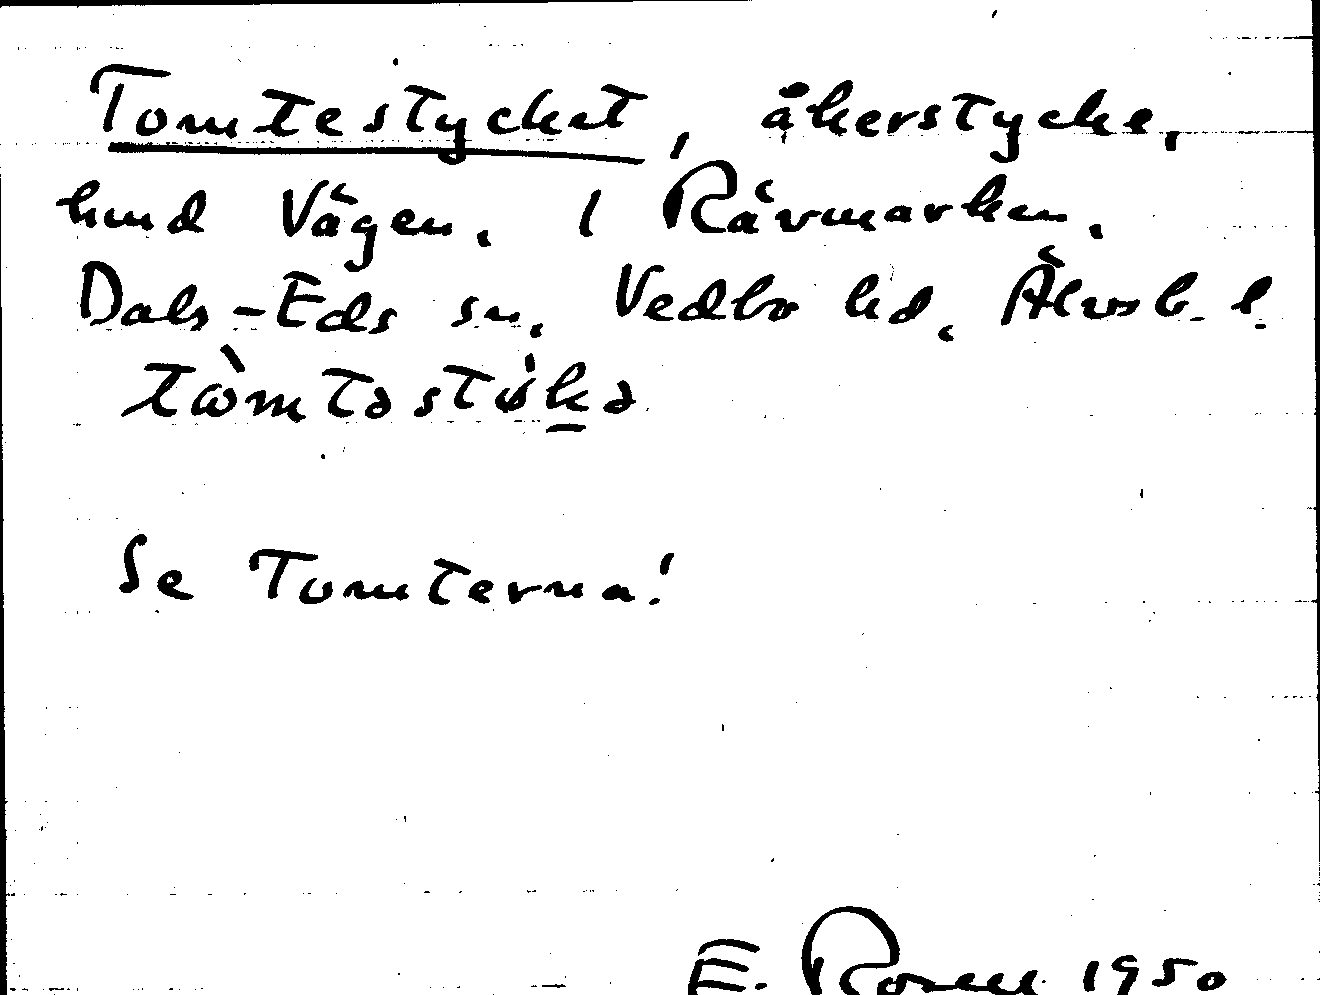 Tomtestycket, åkerstycke,
hmd Vägen. I Rävmarken.
Dals-Eds sn. Vedbo hd. Älvsb. l.
Se Tomterna!
E. Rosell 1950